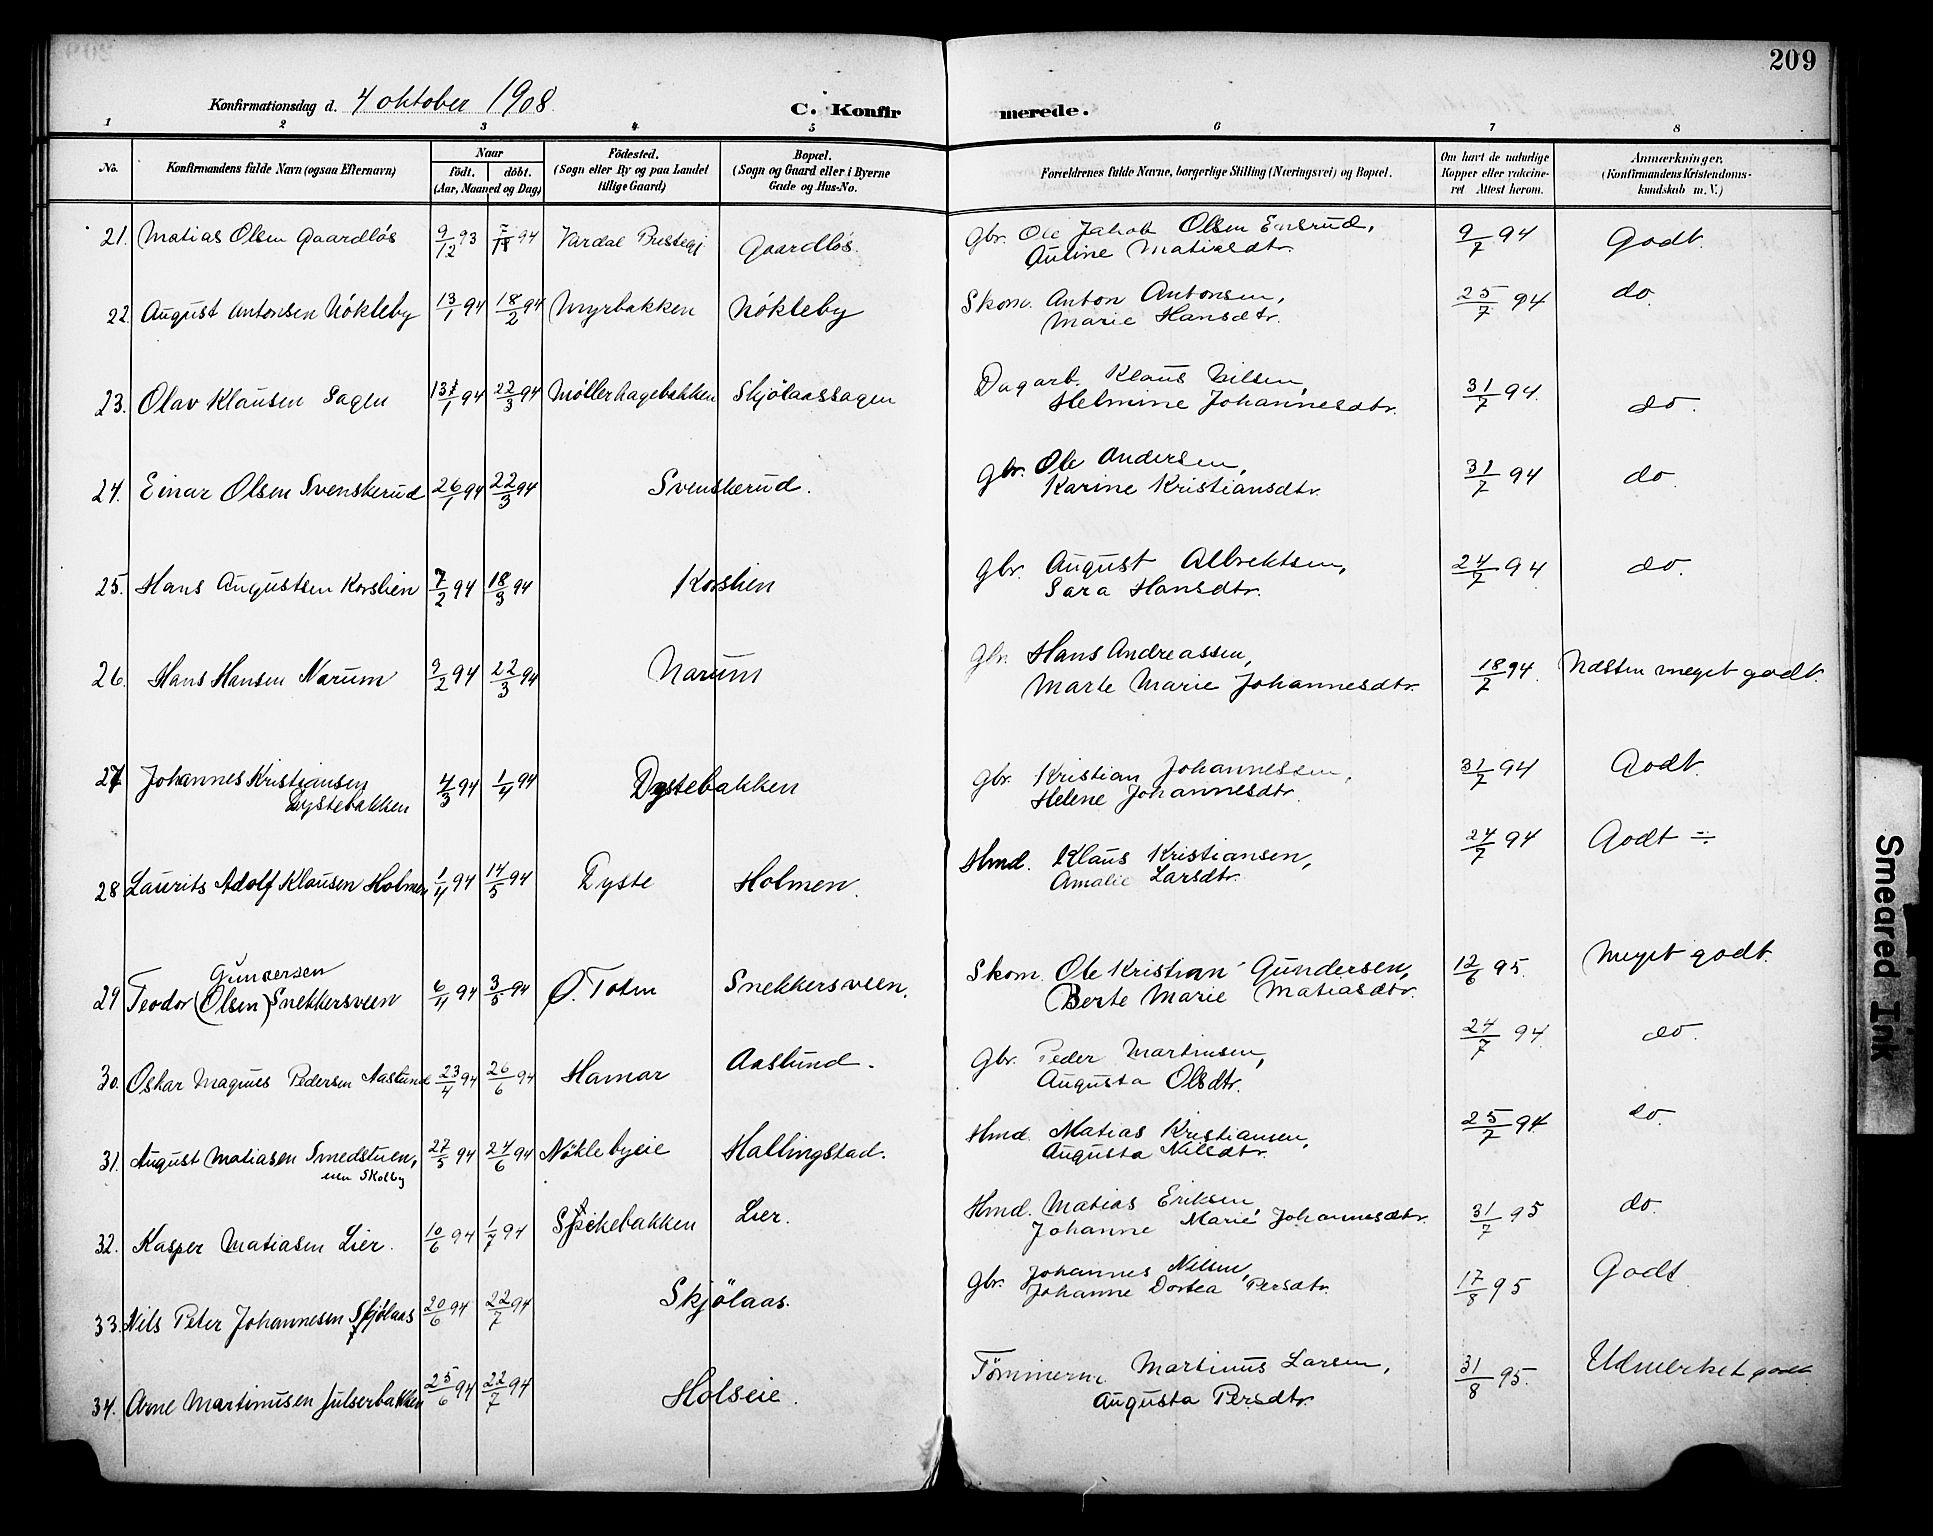 209
Konfirmationsdag d. 4 oktober 1908 C. Konfir merede.
1 2 3 4 5 6 7 8
No. Konfirmandens fulde Navn (ogsaa Efternavn) Naar födt. döbt. (Aar, Maaned og Dag) Födested. (Sogn eller By og paa Landet tillige Gaard) Bopæl. (Sogn og Gaard eller i Byerne Gade og Hus-No. Forældrenes fulde Navne, borgerlige Stilling (Næringsvei) og Bopæl. Om havt de naturlige Kopper eller vaccineret Attest herom. Anmærkninger. (Konfirmandens Kristendomskundskab m. V.)
21. Matias Olsen Gaardlös 9/12 93 94 Vardal Prestegj Gaardlös. Gbr. Ole Jakob Olsen Ensrud, 9/7 94 Godt.
Auline Matiasdtr.
22. August Antonsen Nökleby 13/1 94 18/2 94 Myrbakken Nökleby Skom. Anton Antonsen, 25/7 94 do.
Marie Hansdtr.
23. Olav Klausen Sagen 94 22/3 94 Möllerhagebakken Skjölaassagen Dagarb. Klaus Nilsen, 31/7 94. do.
Helmine Johannesdtr.
24. Einar Olsen Svenskerud 26/1 94 22/3 94 Svenskerud. Gbr. Ole Andersen, 31/7 94 do.
Karine Kristiansdtr.
25. Hans Augustsen Korslien 7/2 94 18/3 94 Korslien Gbr. August Albrektsen, 24/7 94 do.
Sara Hansdtr.
26. Hans Hansen Narum 9/2 94 22/3 94 Narum Gbr. Hans Andreassen, 18/7 94. Næsten meget godt.
Marte Marie Johannesdtr.
27. Johannes Kristiansen 4/3 94 1/4 94 Dystebakken Gbr. Kristian Johannessen, 31/7 94 Godt.
Dystebakken Helene Johannesdtr.
28. Laurits Adolf Klausen Holmen 1/4 94 14/5 94 Dyste Holmen. Hmd. Klaus Kristiansen, 24/7 94 Godt ÷
Amalie Larsdtr.
Gundersen
29 Teodor (Olsen) Snekkersveen 6/4 94 3/5 94 Ø. Toten Snekkersveen. Skom. Ole Kristian Gundersen, 12/6 95. Meget godt.
Berte Marie Matiasdtr.
30. Oskar Magnus Pedersen Aaslund 23/4 94 26/6 94 Hamar Aaslund. Gbr. Peder Martinsen, 24/7 94. do.
Augusta Olsdtr.
31. August Matiasen Smedstuen, 27/5 94 24/6 94 Nöklebyeie Hallingstad. Hmd. Matias Kristiansen, 25/7 94 do.
Skolby Augusta Nilsdtr.
32. Kasper Matiasen Lier. 10/6 94 1/7 94 Spikebakken Lier. Hmd. Matias Eriksen, 31/7 95 do.
Johanne Marie Johannesdtr.
33. Nils Peter Johannesen Skjölaas 20/6 94 22/7 94 Skjölaas. Gbr. Johannes Nilsen, 17/8 95 Godt.
Johanne Dortea Persdtr.
34. Arne Martinusen Julserbakken 25/6 94 22/7 94 Holseie. Tömmerm. Martinus Larsen, 31/8 95. Udmerket godt
Augusta Persdtr.
Smeared Ink